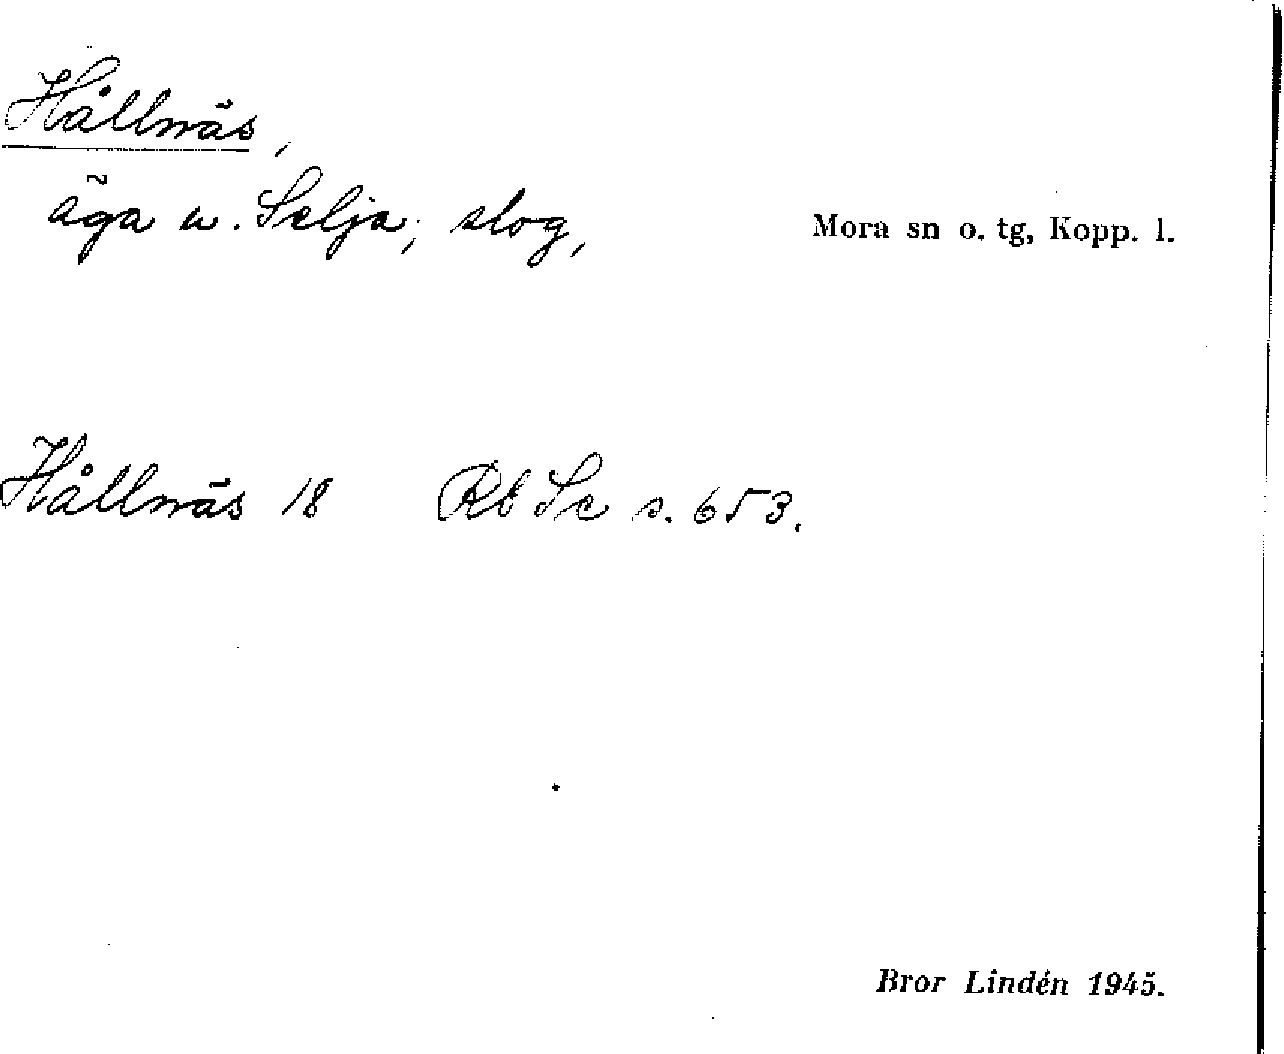 Hållnäs,
äga u. Selja; slog,
Mora sn o. tg, Kopp. l.
Hållnäs 18 Rb Se s. 653.
Bror Lindén 1945.